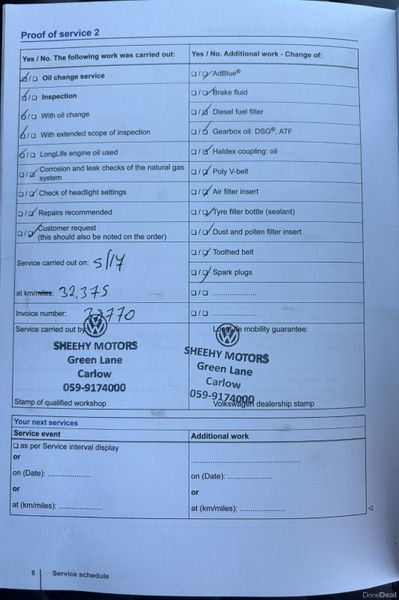 Proof of service 2
Yes / No. The following work was carried out:
☑/☐ Oil change service
☑/☐ Inspection
☑/☐ With oil change
☑/☐ With extended scope of inspection
☑/☐ LongLife engine oil used
☐/☑ Corrosion and leak checks of the natural gas
system
☐/☑ Check of headlight settings
☐/☑ Repairs recommended
☐/☑ Customer request
(this should also be noted on the order)
Service carried out on: 5/17
at km/miles: 32,375
Invoice number:
Service carried out by
SHEEHY MOTORS
Green Lane
Carlow
059-9174000
Stamp of qualified workshop
Yes / No. Additional work - Change of:
☐/☑ AdBlue®
☐/☑ Brake fluid
☐/☑ Diesel fuel filter
☐/☑ Gearbox oil: DSG®, ATF
☐/☑ Haldex coupling: oil
☐/☑ Poly V-belt
☐/☑ Air filter insert
☐/☑ Tyre filler bottle (sealant)
☐/☑ Dust and pollen filter insert
☐/☑ Toothed belt
☐/☑ Spark plugs
☐/☐ ...................
☐/☐ ...................
mobility guarantee:
SHEEHY MOTORS
Green Lane
Carlow
059-9174000
Volkswagen dealership stamp
Your next services
Service event
☐ as per Service interval display
or
on (Date): ...................
or
at (km/miles): ...................
Additional work
...................
on (Date): ...................
or
at (km/miles): ...................
8 Service schedule
DoneDeal